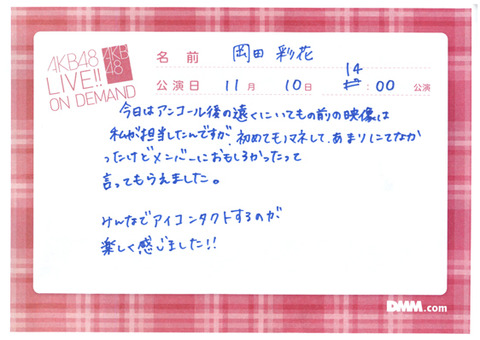 AKB48
LIVE!!
ON DEMAND
AKB
48
名前 岡田彩花
公演日 11月 10日 14:00 公演
今日はアンコール後の遠くにいてもの前の映像は
私が担当したんですが、初めてモノマネして、あまりにてなか
ったけどメンバーにおもしろかったって
言ってもらえました。
みんなでアイコンタクトするのが
楽しく感じました!!
DMM.com